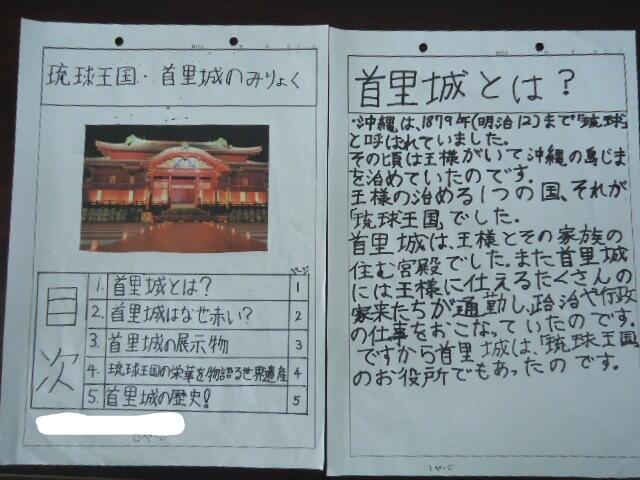 琉球王国・首里城のみりょく
目次
ページ
1. 首里城とは? 1
2. 首里城はなぜ赤い? 2
3. 首里城の展示物 3
4. 琉球王国の栄華を物語る世界遺産 4
5. 首里城の歴史! 5
0ページ
首里城とは?
・沖縄は、1879年(明治12)まで「琉球」
と呼ばれていました。
その頃は王様がいて沖縄の島じま
を治めていたのです。
王様の治める1つの国、それが
「琉球王国」でした。
首里城は、王様とその家族の
住む宮殿でした。また首里城
には王様に仕えるたくさんの
家来たちが通勤し、政治や行政
の仕事をおこなっていたのです。
ですから首里城は、「琉球王国」
のお役所でもあったのです。
1ページ